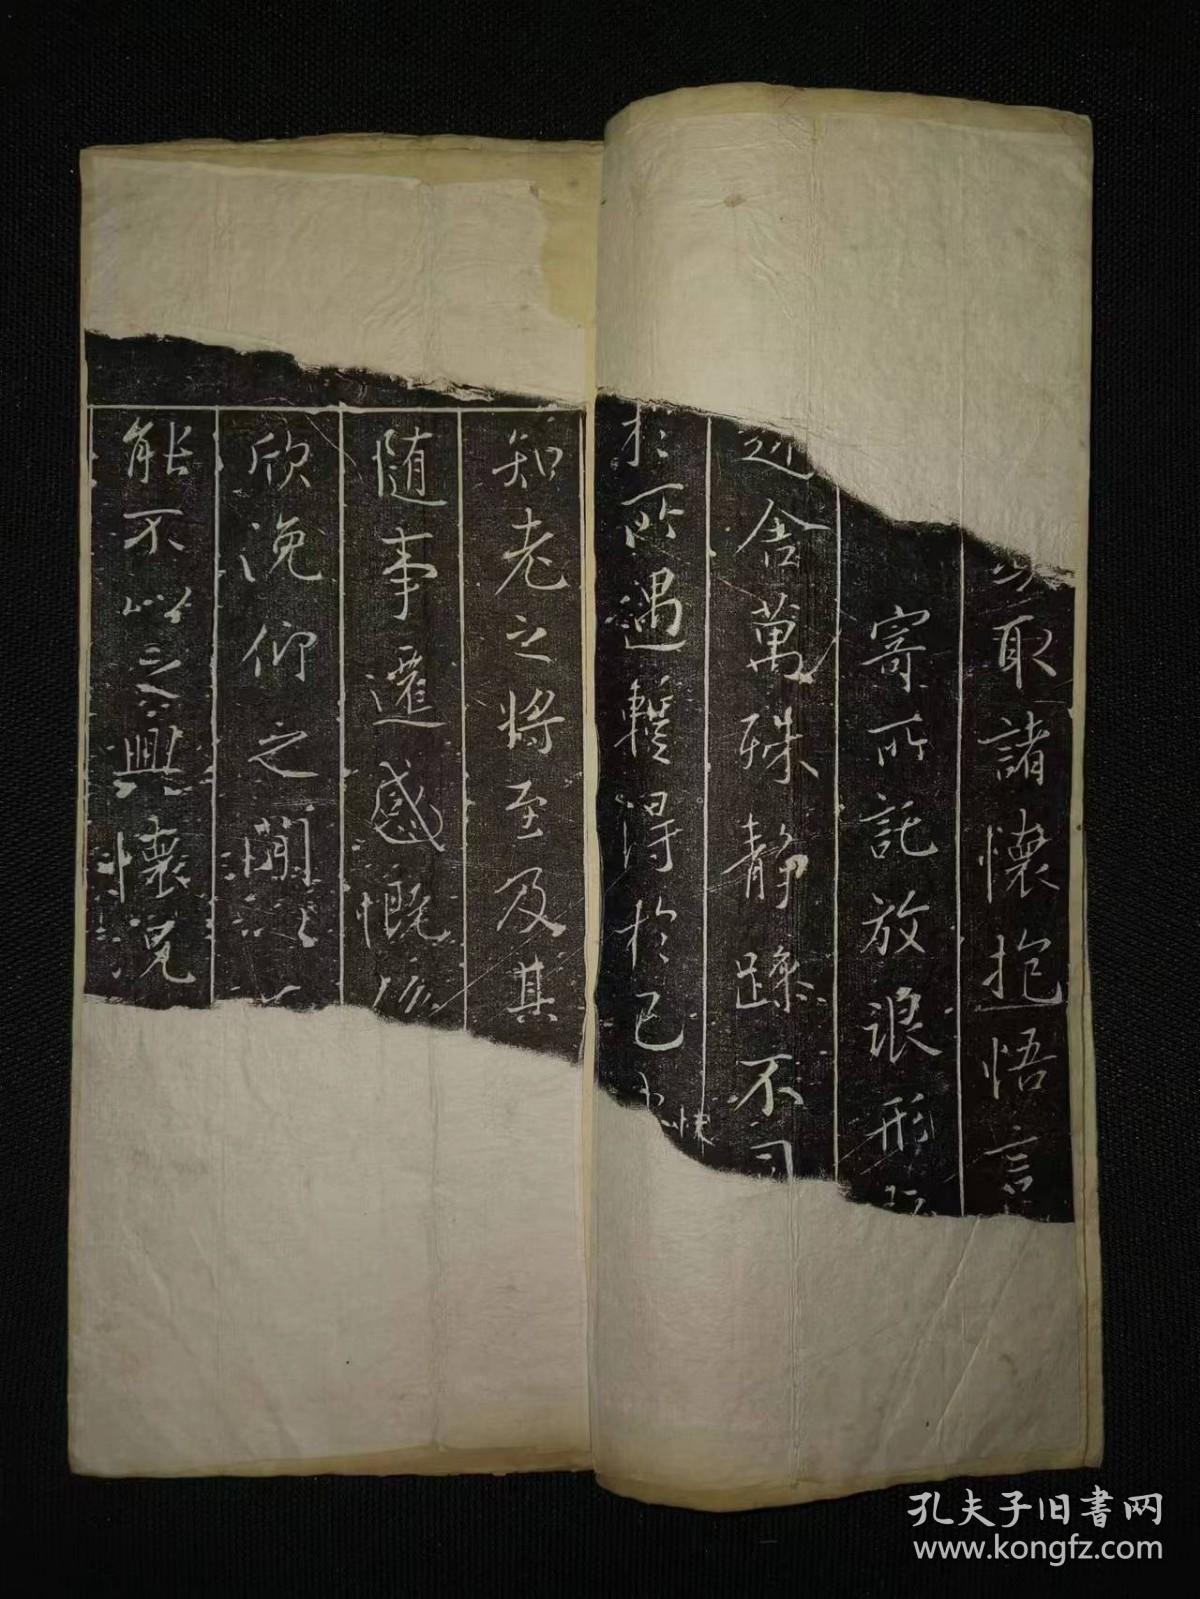 取諸懷抱悟言
寄所託放浪形
舍萬殊靜躁不
於所遇蹔得於己快
知老之將至及其
隨事遷感慨係
欣俛仰之間以
能不以之興懷況
孔夫子旧書网
www.kongfz.com